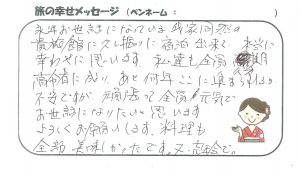 旅の幸せメッセージ（ペンネーム：　　　　　）
永年お世話になっている我家同然の
貴旅館に久し振りに宿泊出来て 本当に
幸わせに思います。私達も全員
高令者に成り、あと何年ここに来られるか
不安ですが、頑張って全員元気で
お世話になりたいと思います
よろしくお願いします。料理も
全部美味しかったです。又、